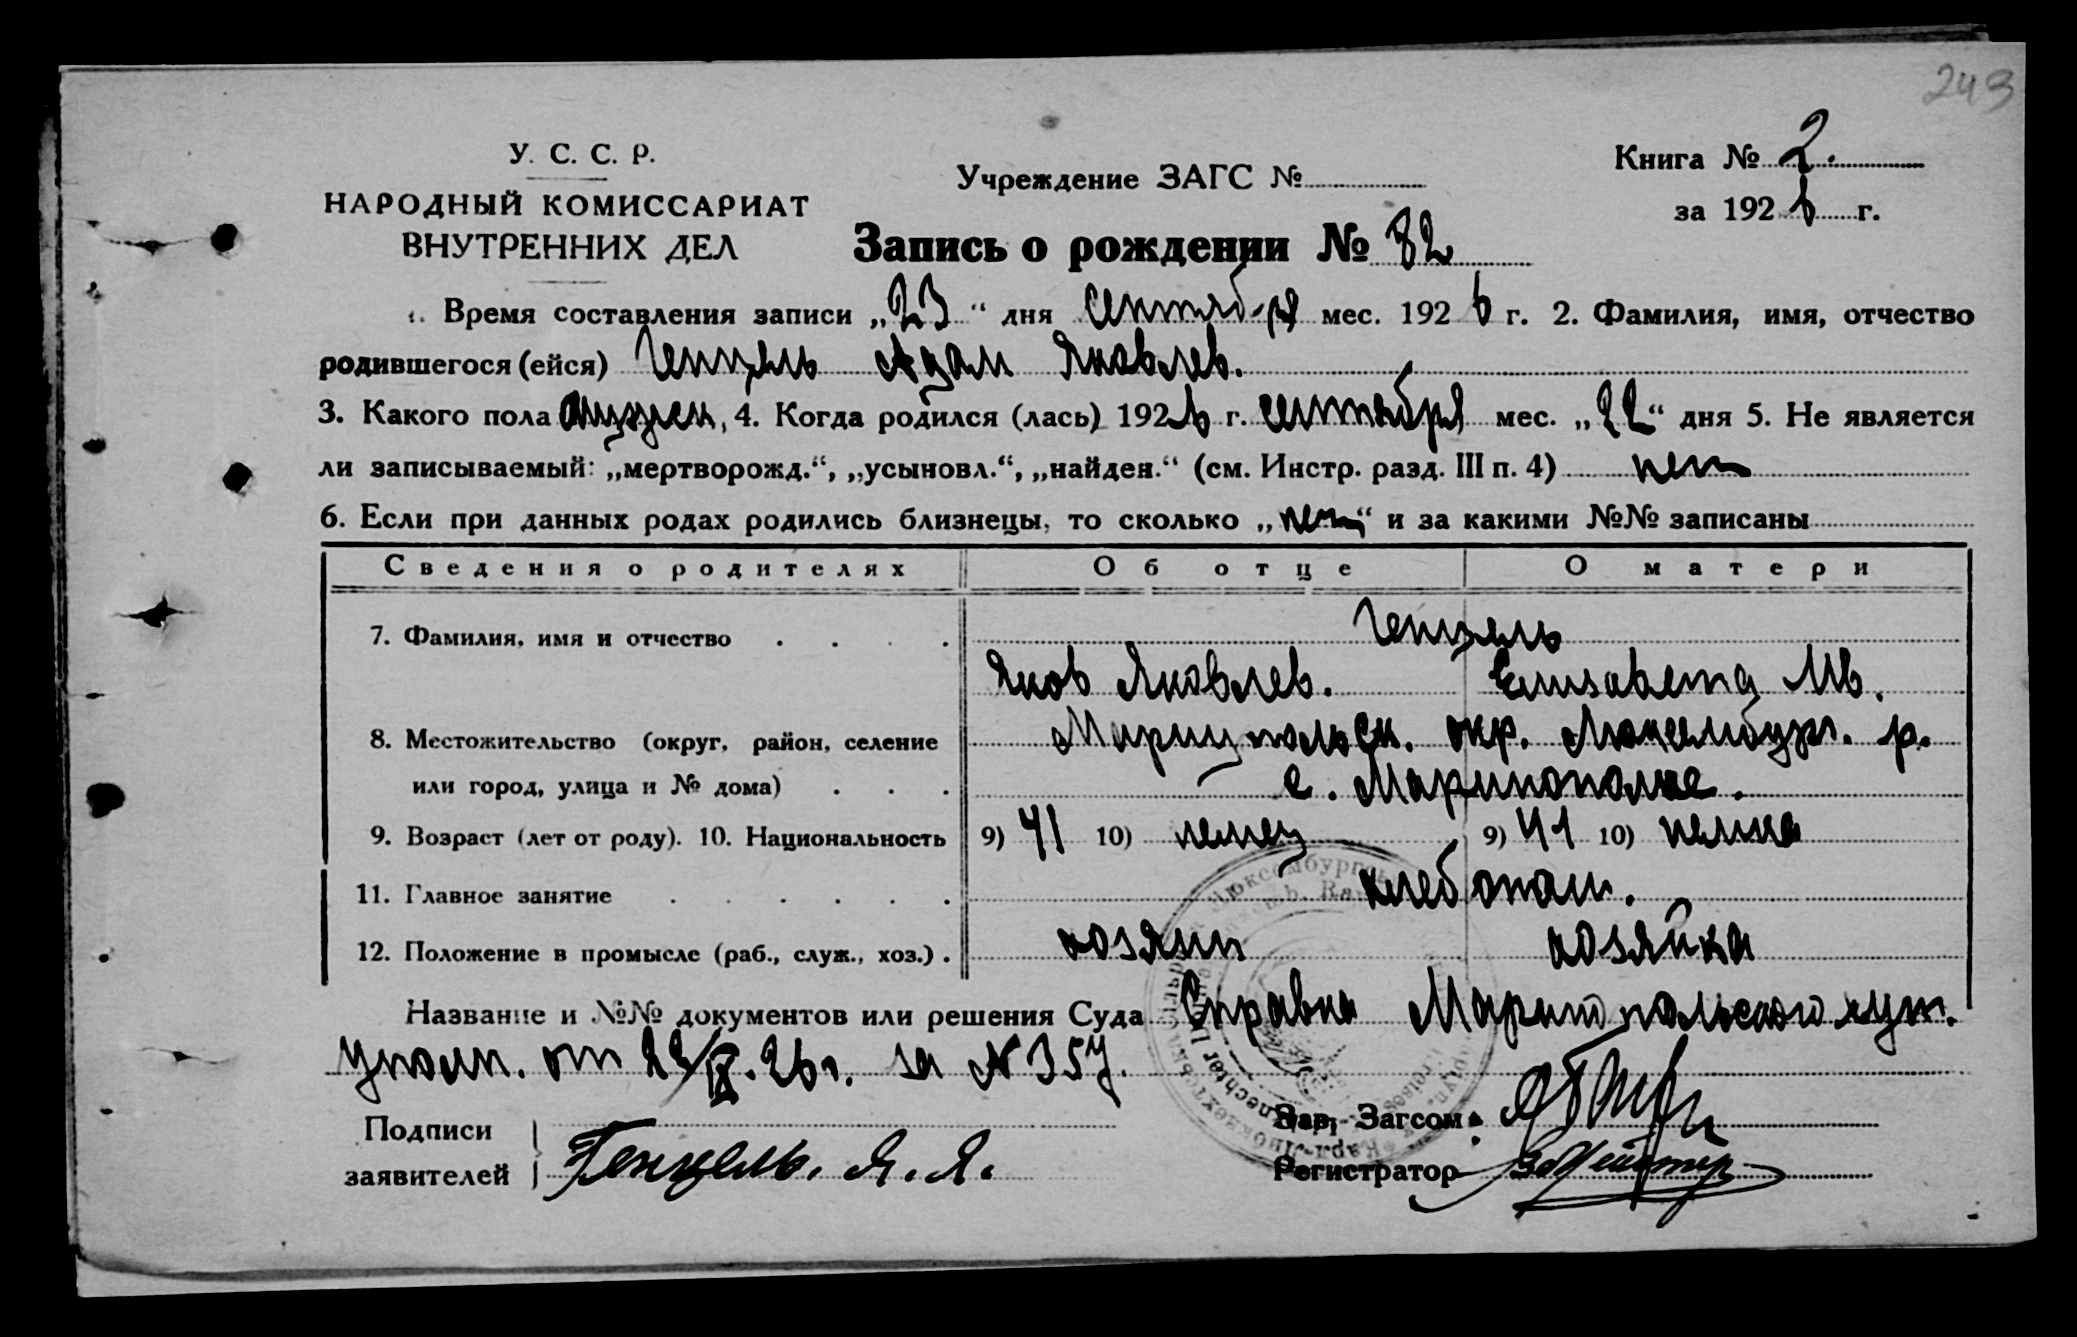 243
У. С. С. Р.
НАРОДНЫЙ КОМИССАРИАТ
ВНУТРЕННИХ ДЕЛ
Учреждение ЗАГС №
Книга № 2.
за 1926 г.
Запись о рождении № 82
1. Время составления записи „23“ дня сентября мес. 1926 г. 2. Фамилия, имя, отчество
родившегося (ейся) Генцель Адам Яковлев.
3. Какого пола мужск, 4. Когда родился (лась) 1926 г. сентября мес. „22“ дня 5. Не является
ли записываемый: „мертворожд.“, „усыновл.“, „найден.“ (см. Инстр. разд. III п. 4) нет
6. Если при данных родах родились близнецы, то сколько „нет“ и за какими №№ записаны
Сведения о родителях Об отце О матери
7. Фамилия, имя и отчество . . . . Генцель
Яков Яковлев. Елизавета Ив.
8. Местожительство (округ, район, селение Мариупольск. окр. Люксембург. р.
или город, улица и № дома) . . . с. Маринополье.
9. Возраст (лет от роду). 10. Национальность 9) 41 10) немец 9) 41 10) немка
11. Главное занятие . . . . . . хлебопаш.
12. Положение в промысле (раб., служ., хоз.) . хозяин хозяйка
Название и №№ документов или решения Суда Справка Маринопольского хут.
уполн. от 22/IX.26 г. за №357.
Подписи
заявителей Генцель. Я. Я.
Зав. Загсом:
Регистратор